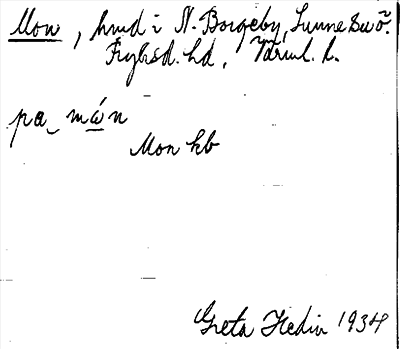 Mon, hmd i N. Borgeby, Sunne sn o.
Fryksd. hd, Värml. l.
pa_ mán
Mon kb
Greta Hedin 1934